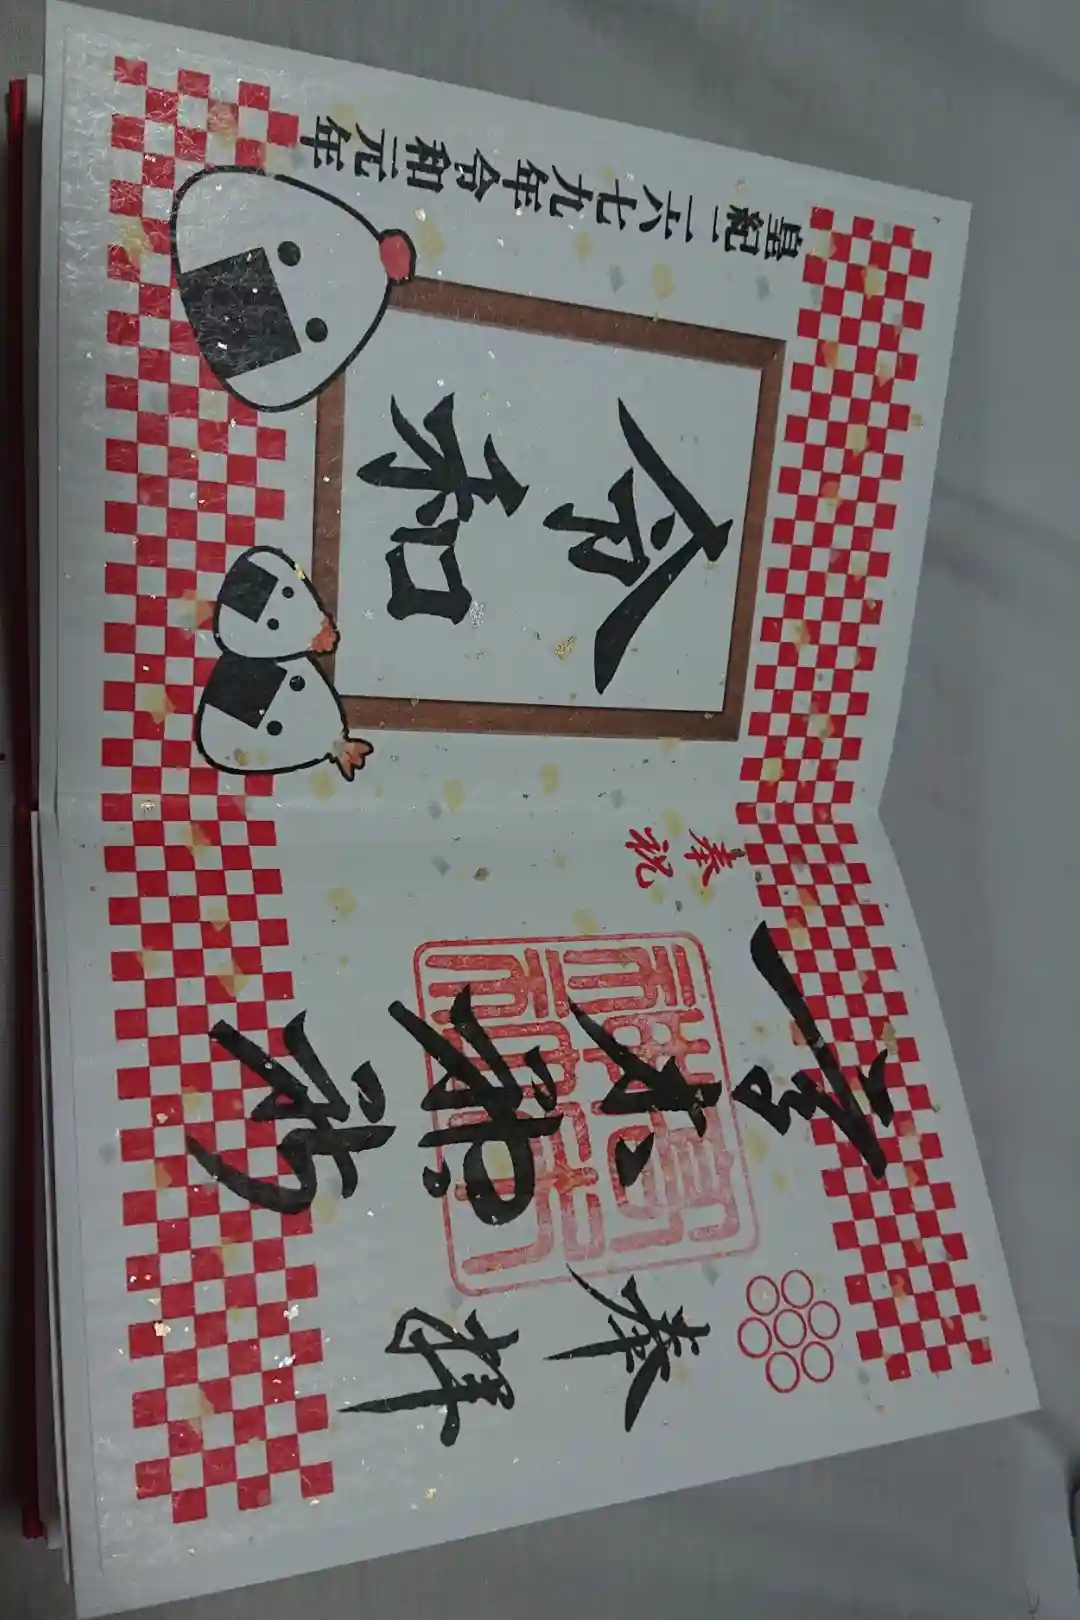 奉拝
高木神社
奉祝
令和
皇紀二六七九年令和元年